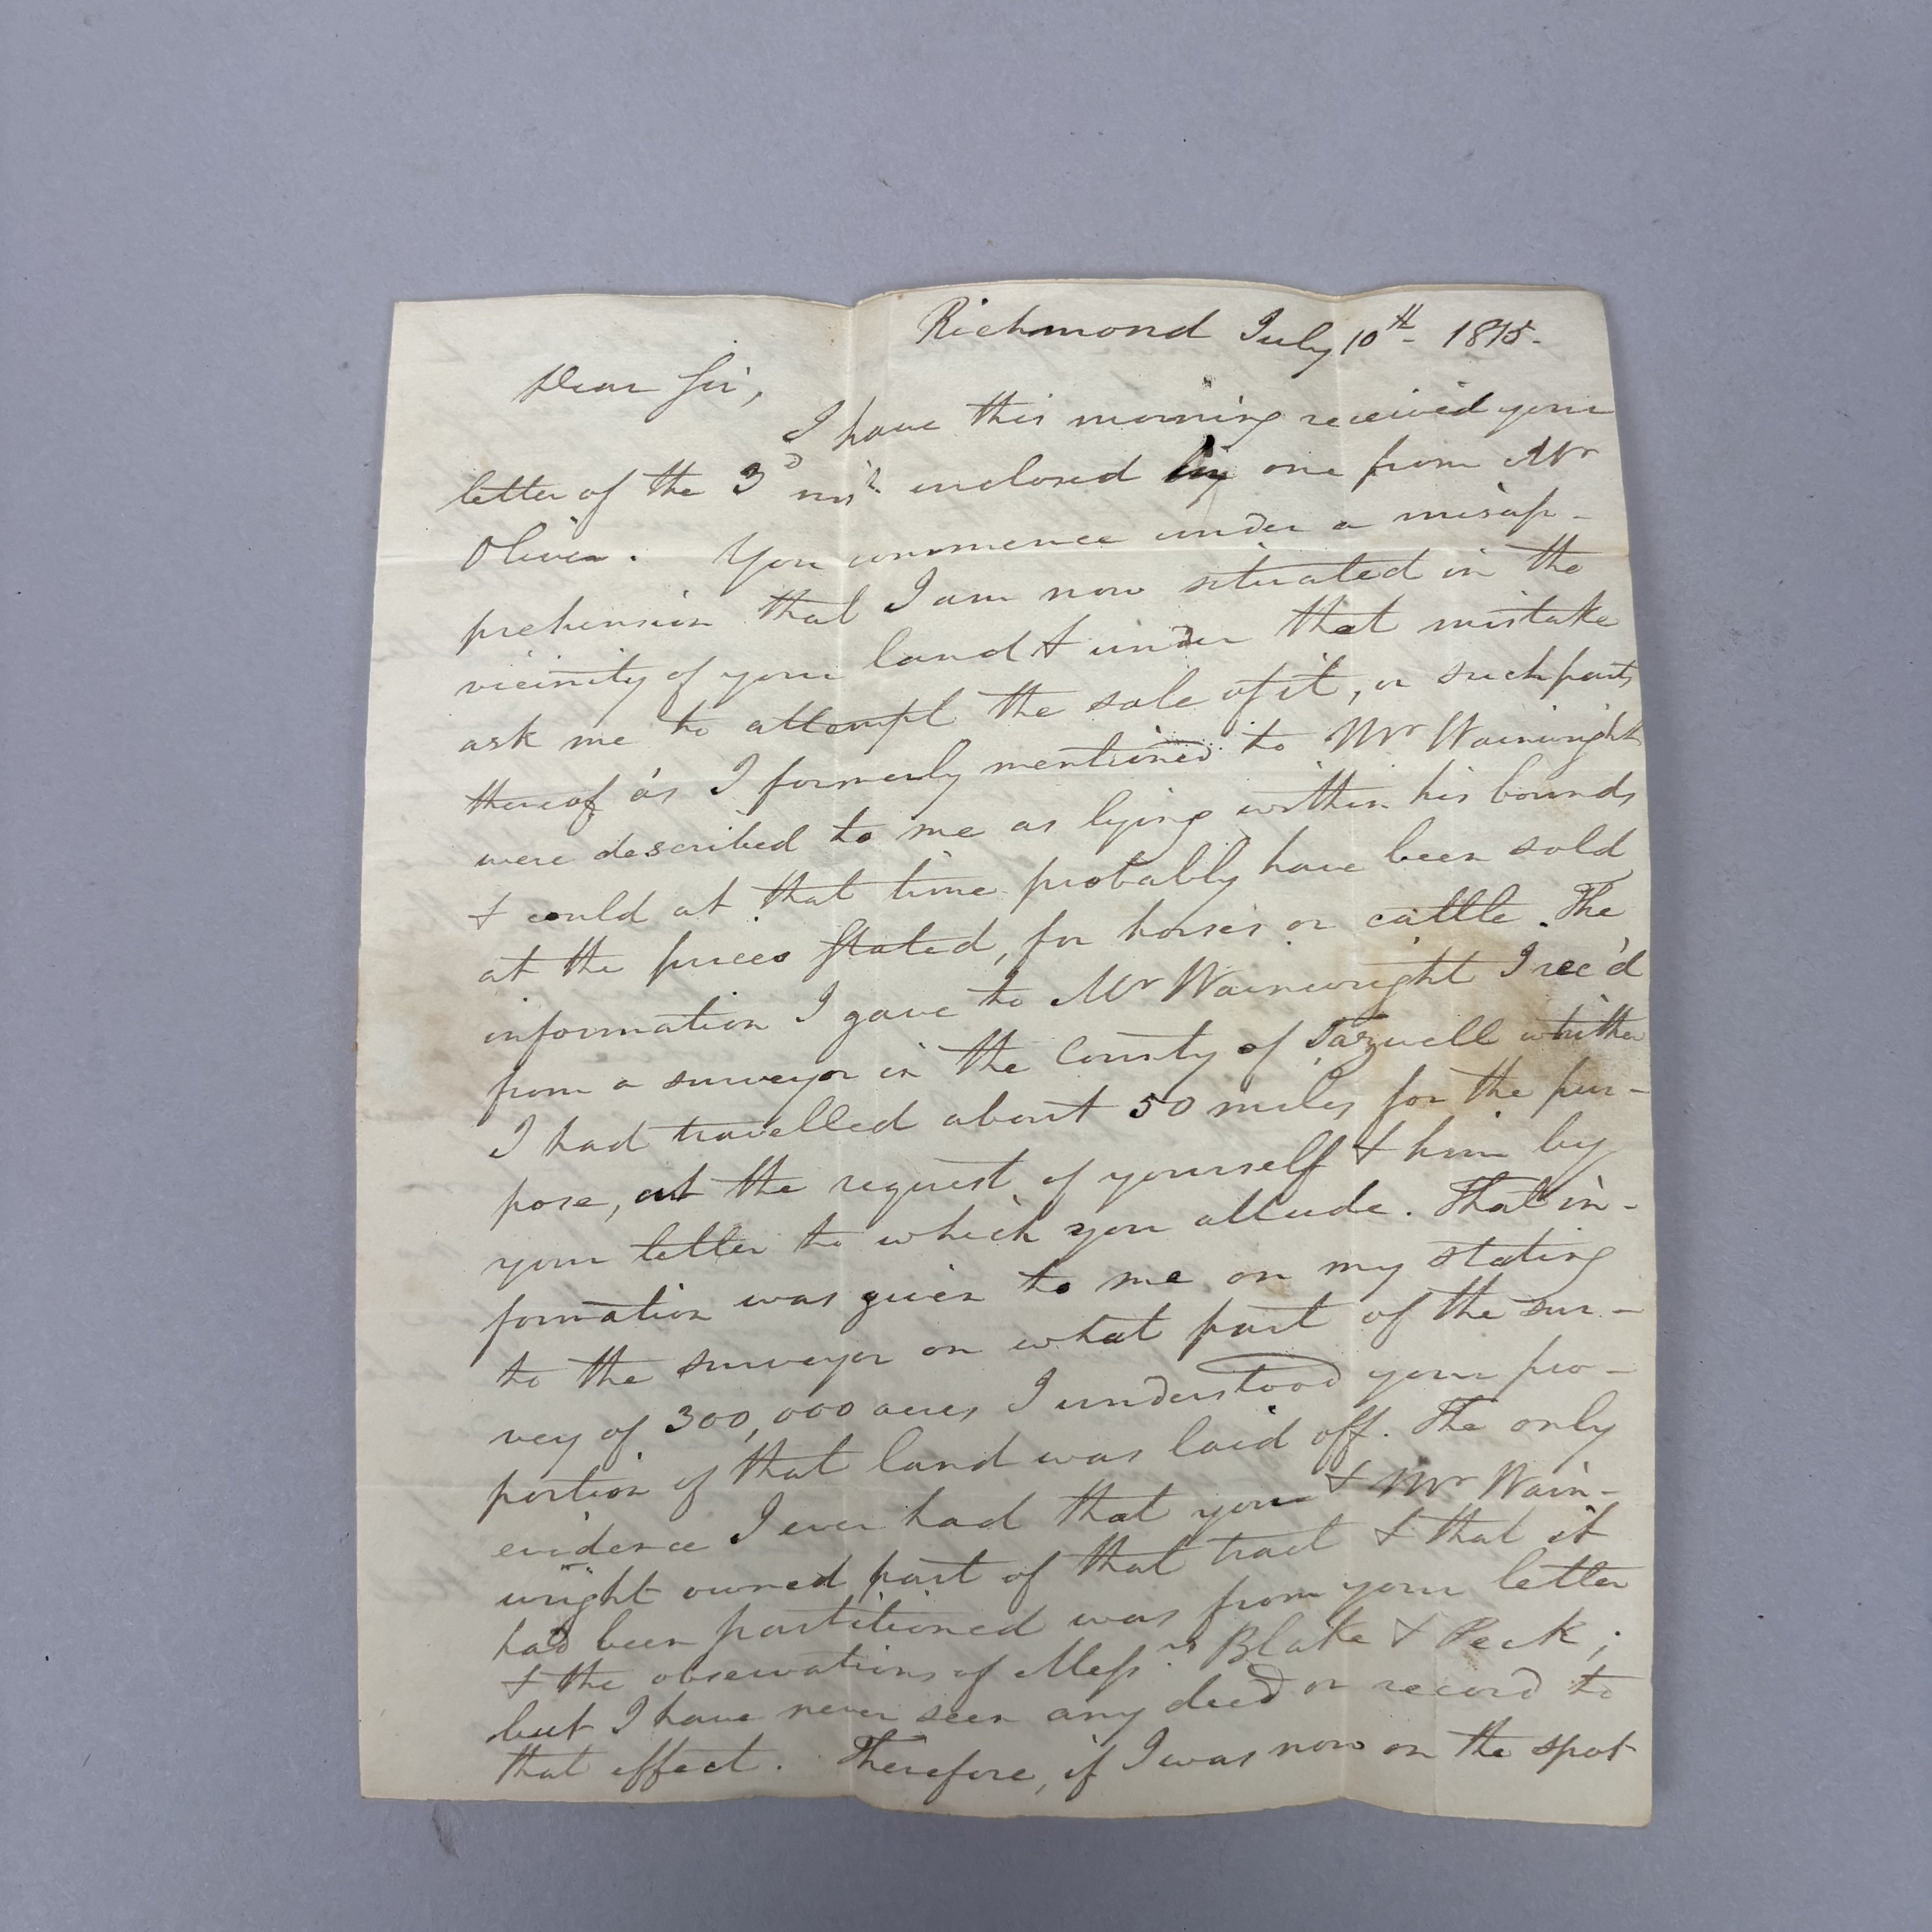 Richmond July 10th - 1815 -
Dear Sir,
I have this morning received your
letter of the 3d inst. inclosed by one from Mr
Oliver. You commence under a misap-
prehension that I am now situated in the
vicinity of your land & under that mistake
ask me to attempt the sale of it, or such parts
thereof as I formerly mentioned to Mr Wainwright
were described to me as lying within his bounds
& could at that time probably have been sold
at the prices stated, for horses or cattle. The
information I gave to Mr Wainwright I rec'd
from a surveyor in the County of Tazwell whither
I had travelled about 50 miles for the pur-
pose, at the request of yourself & him by
your letter to which you allude. That in-
formation was given to me on my stating
to the surveyor on what part of the sur-
vey of 300,000 acres I understood your pro-
portion of that land was laid off. The only
evidence I ever had that you & Mr Wain-
wright owned part of that tract & that it
had been partitioned was from your letter
& the observations of Messrs Blake & Peck;
but I have never seen any deed or record to
that effect. Therefore, if I was now on the spot